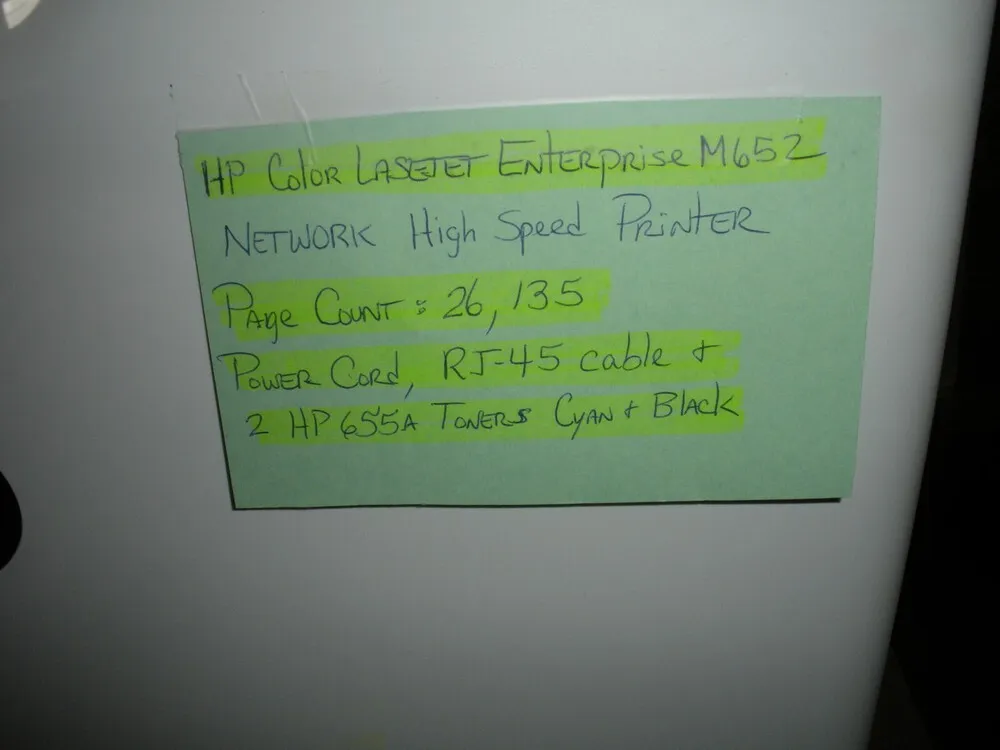 HP Color LASEJET ENTERprise M652
NETWORK High Speed PRiNTER
PAge COUNT : 26,135
POWER CORd, RJ-45 cable +
2 HP 655A TONERS CYAN + BlAcK